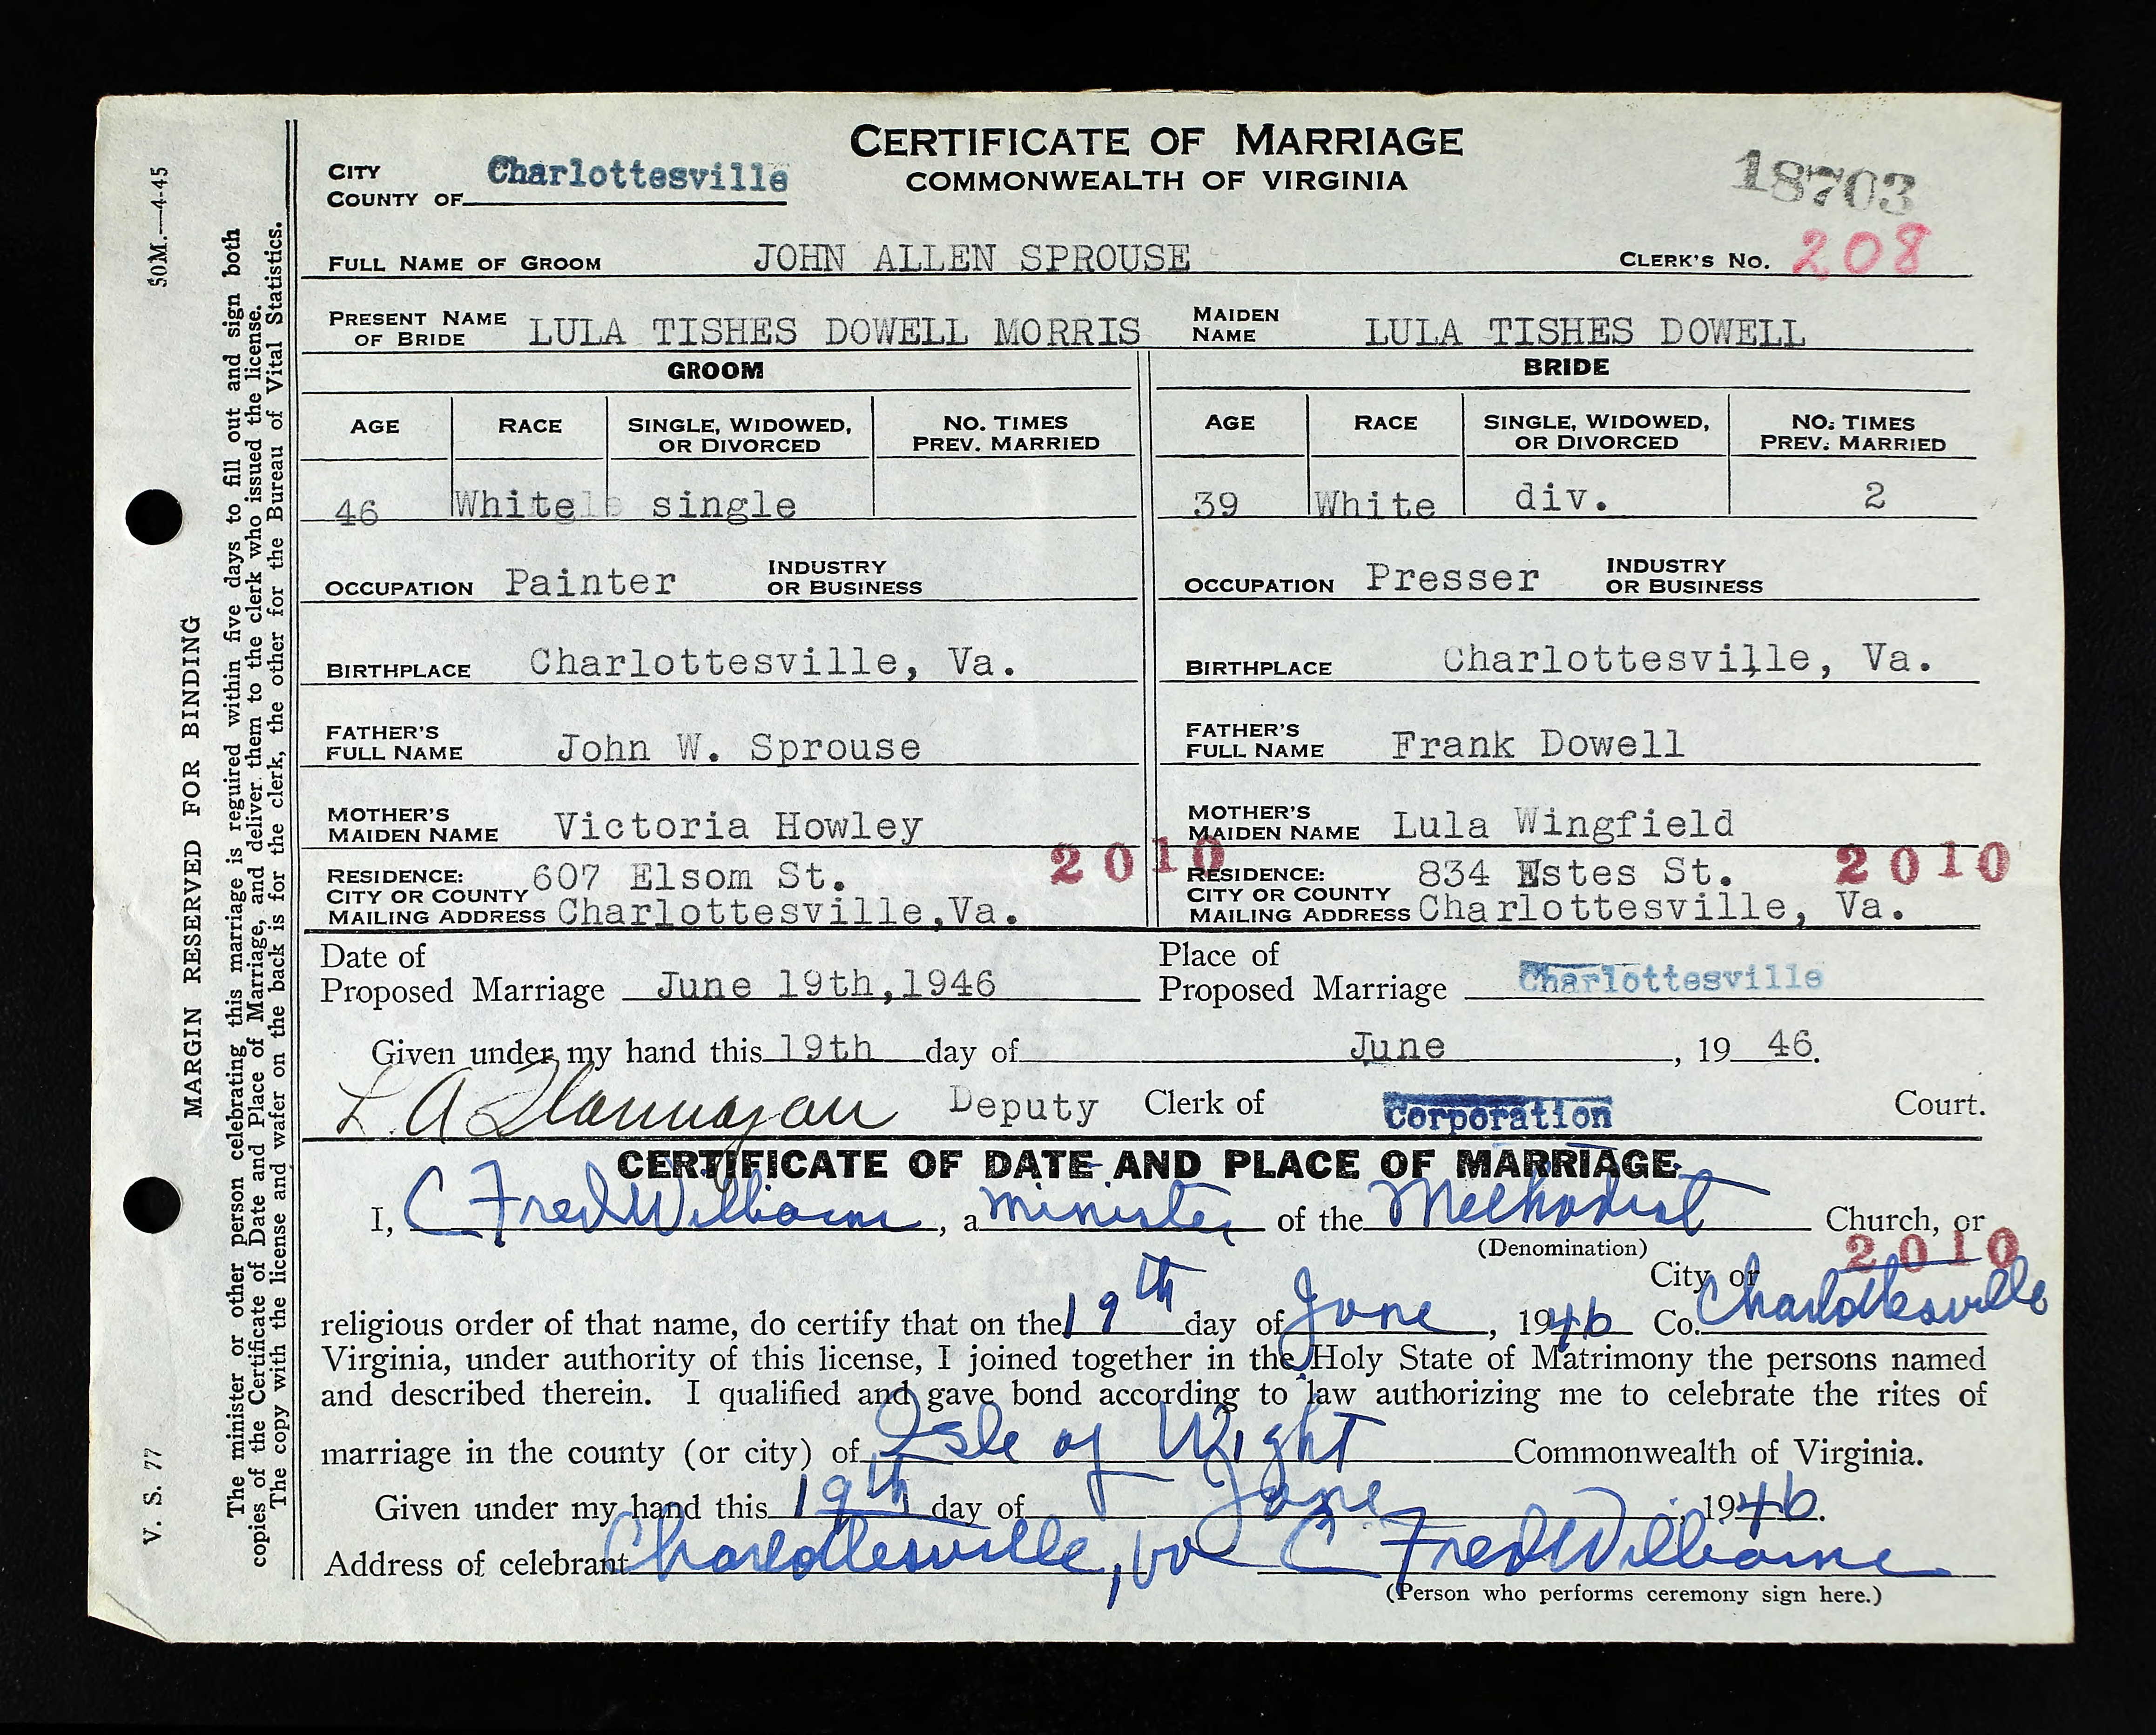 CERTIFICATE OF MARRIAGE
COMMONWEALTH OF VIRGINIA
CITY
COUNTY OF Charlottesville
18703
FULL NAME OF GROOM JOHN ALLEN SPROUSE CLERK'S NO. 208
PRESENT NAME OF BRIDE LULA TISHES DOWELL MORRIS MAIDEN NAME LULA TISHES DOWELL
GROOM BRIDE
AGE RACE SINGLE, WIDOWED, OR DIVORCED NO. TIMES PREV. MARRIED AGE RACE SINGLE, WIDOWED, OR DIVORCED NO. TIMES PREV. MARRIED
46 White single 39 White div. 2
OCCUPATION Painter INDUSTRY OR BUSINESS OCCUPATION Presser INDUSTRY OR BUSINESS
BIRTHPLACE Charlottesville, Va. BIRTHPLACE Charlottesville, Va.
FATHER'S FULL NAME John W. Sprouse FATHER'S FULL NAME Frank Dowell
MOTHER'S MAIDEN NAME Victoria Howley MOTHER'S MAIDEN NAME Lula Wingfield
2010 2010
RESIDENCE: 607 Elsom St. RESIDENCE: 834 Estes St.
CITY OR COUNTY CITY OR COUNTY
MAILING ADDRESS Charlottesville,Va. MAILING ADDRESS Charlottesville, Va.
Date of Proposed Marriage June 19th,1946 Place of Proposed Marriage Charlottesville
Given under my hand this 19th day of June, 19 46.
L. A. Flannagan Deputy Clerk of Corporation Court.
CERTIFICATE OF DATE AND PLACE OF MARRIAGE
I, C Fred Williams, a minister of the Methodist Church, or
(Denomination) 2010
City or
religious order of that name, do certify that on the 19th day of June, 1946 Co. Charlottesville
Virginia, under authority of this license, I joined together in the Holy State of Matrimony the persons named
and described therein. I qualified and gave bond according to law authorizing me to celebrate the rites of
marriage in the county (or city) of Isle of Wight Commonwealth of Virginia.
Given under my hand this 19th day of June, 1946.
Address of celebrant Charlottesville, Va C Fred Williams
(Person who performs ceremony sign here.)
V. S. 77 50M.—4-45
MARGIN RESERVED FOR BINDING
The minister or other person celebrating this marriage is required within five days to fill out and sign both
copies of the Certificate of Date and Place of Marriage, and deliver them to the clerk who issued the license.
The copy with the license and wafer on the back is for the clerk, the other for the Bureau of Vital Statistics.